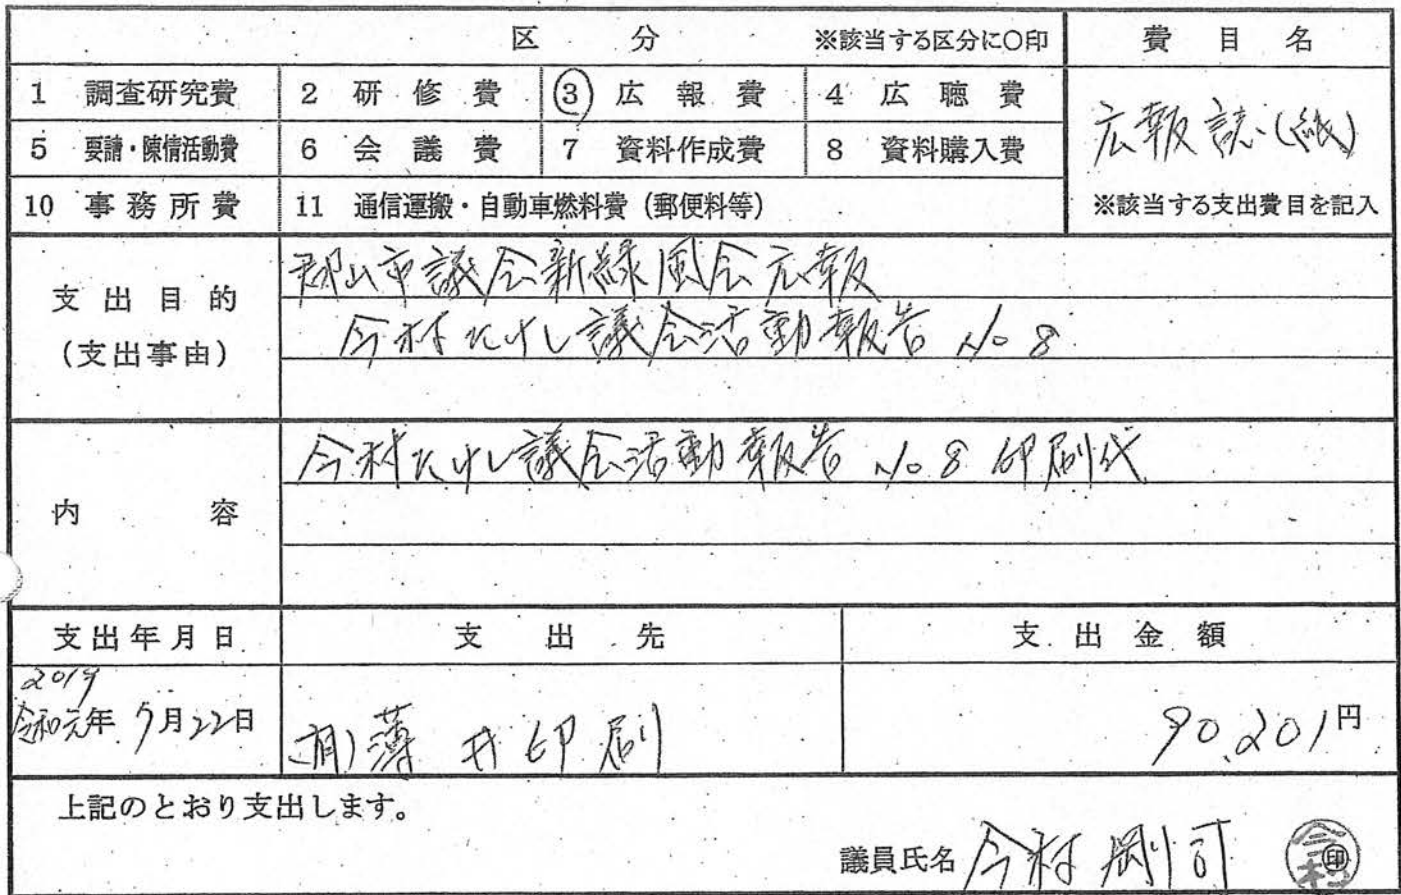 区 分 ※該当する区分に○印 費目名
1 調査研究費 2 研修費 ③ 広報費 4 広聴費 広報誌(紙)
5 要請・陳情活動費 6 会議費 7 資料作成費 8 資料購入費
10 事務所費 11 通信運搬・自動車燃料費(郵便料等) ※該当する支出費目を記入
支出目的
(支出事由)
郡山市議会新緑風会広報
今村たけし議会活動報告 No 8
内容
今村たけし議会活動報告 No 8 印刷代
支出年月日 支出先 支出金額
2019
令和元年 月22日 (有)薄井印刷 90,201円
上記のとおり支出します。
議員氏名 今村剛司 ㊞
今村